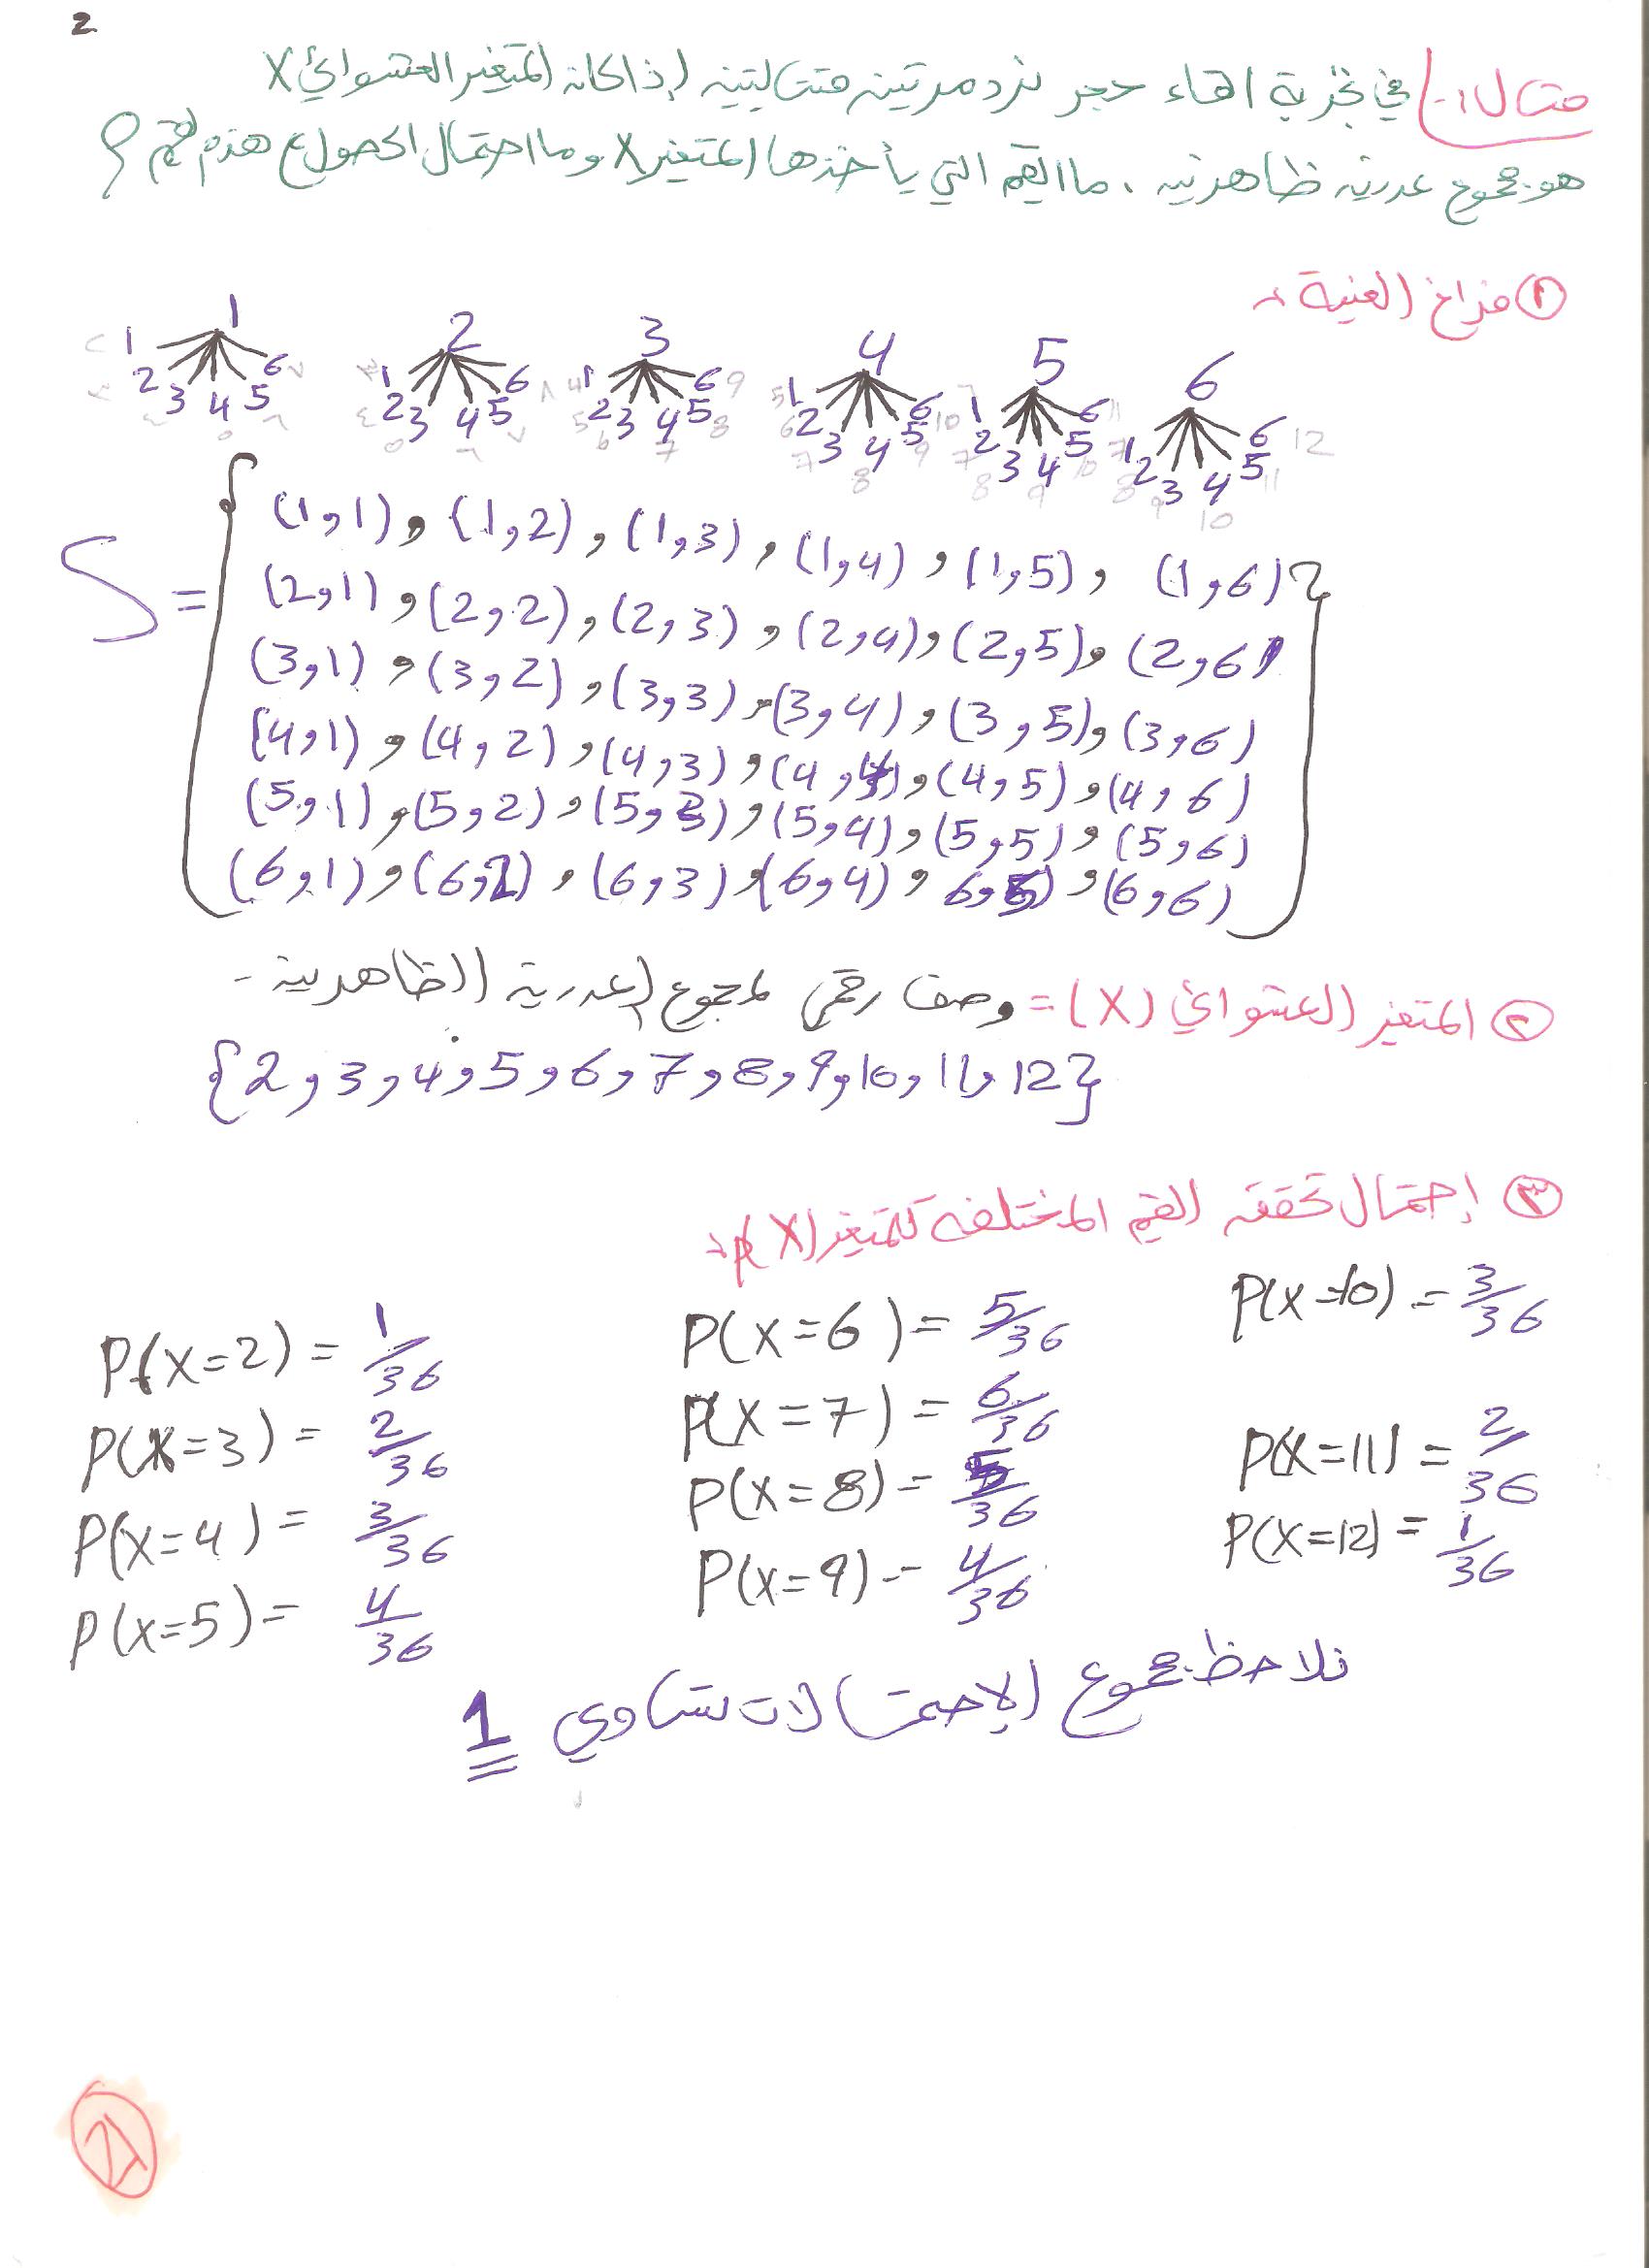 2
مثال 1- في تجربة القاء حجر نرد مرتين متتاليتين إذا كان المتغير العشوائي X
هو مجموع عددين ظاهرين . ما القيم التي يأخذها المتغير X وما احتمال الحصول ع هذه القيم ؟
① فراغ العينة :
1 2 3 4 5 6
1 2 3 4 5 6 1 2 3 4 5 6 1 2 3 4 5 6 1 2 3 4 5 6 1 2 3 4 5 6 1 2 3 4 5 6
S = { (1,1) , (1,2) , (1,3) , (1,4) , (1,5) , (1,6)
(2,1) , (2,2) , (2,3) , (2,4) , (2,5) , (2,6)
(3,1) , (3,2) , (3,3) , (3,4) , (3,5) , (3,6)
(4,1) , (4,2) , (4,3) , (4,4) , (4,5) , (4,6)
(5,1) , (5,2) , (5,3) , (5,4) , (5,5) , (5,6)
(6,1) , (6,2) , (6,3) , (6,4) , 6,5) , (6,6) }
② المتغير العشوائي (X) = وصف رقمي لمجموع العددين الظاهرين -
{2, 3, 4, 5, 6, 7, 8, 9, 10, 11, 12}
③ إحتمال تحقق القيم المختلفه للمتغير P(X) :
P(X=2) = 1/36
P(X=3) = 2/36
P(X=4) = 3/36
P(X=5) = 4/36
P(X=6) = 5/36
P(X=7) = 6/36
P(X=8) = 5/36
P(X=9) = 4/36
P(X=10) = 3/36
P(X=11) = 2/36
P(X=12) = 1/36
نلاحظ مجموع الإحتمالات تساوي 1